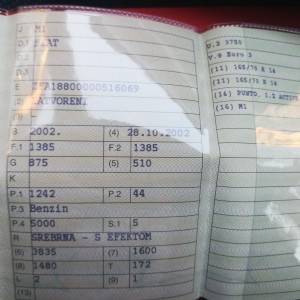 J M1
D.1 FIAT
D.2
D.3
E ZFA18800000516069
(2) ZATVORENI
B 2002. (4) 28.10.2002
F.1 1385 F.2 1385
G 875 (5) 510
K
P.1 1242 P.2 44
P.3 Benzin
P.4 5000 S.1 5
R SREBRNA - S EFEKTOM
(6) 3835 (7) 1600
(8) 1480 T 172
2 (9) 1
(13)
U.2 3750
V.9 Euro 3
(11) 165/70 R 14
(11) 165/70 R 14
(16) PUNTO, 1.2 ACTIVE
(16) M1